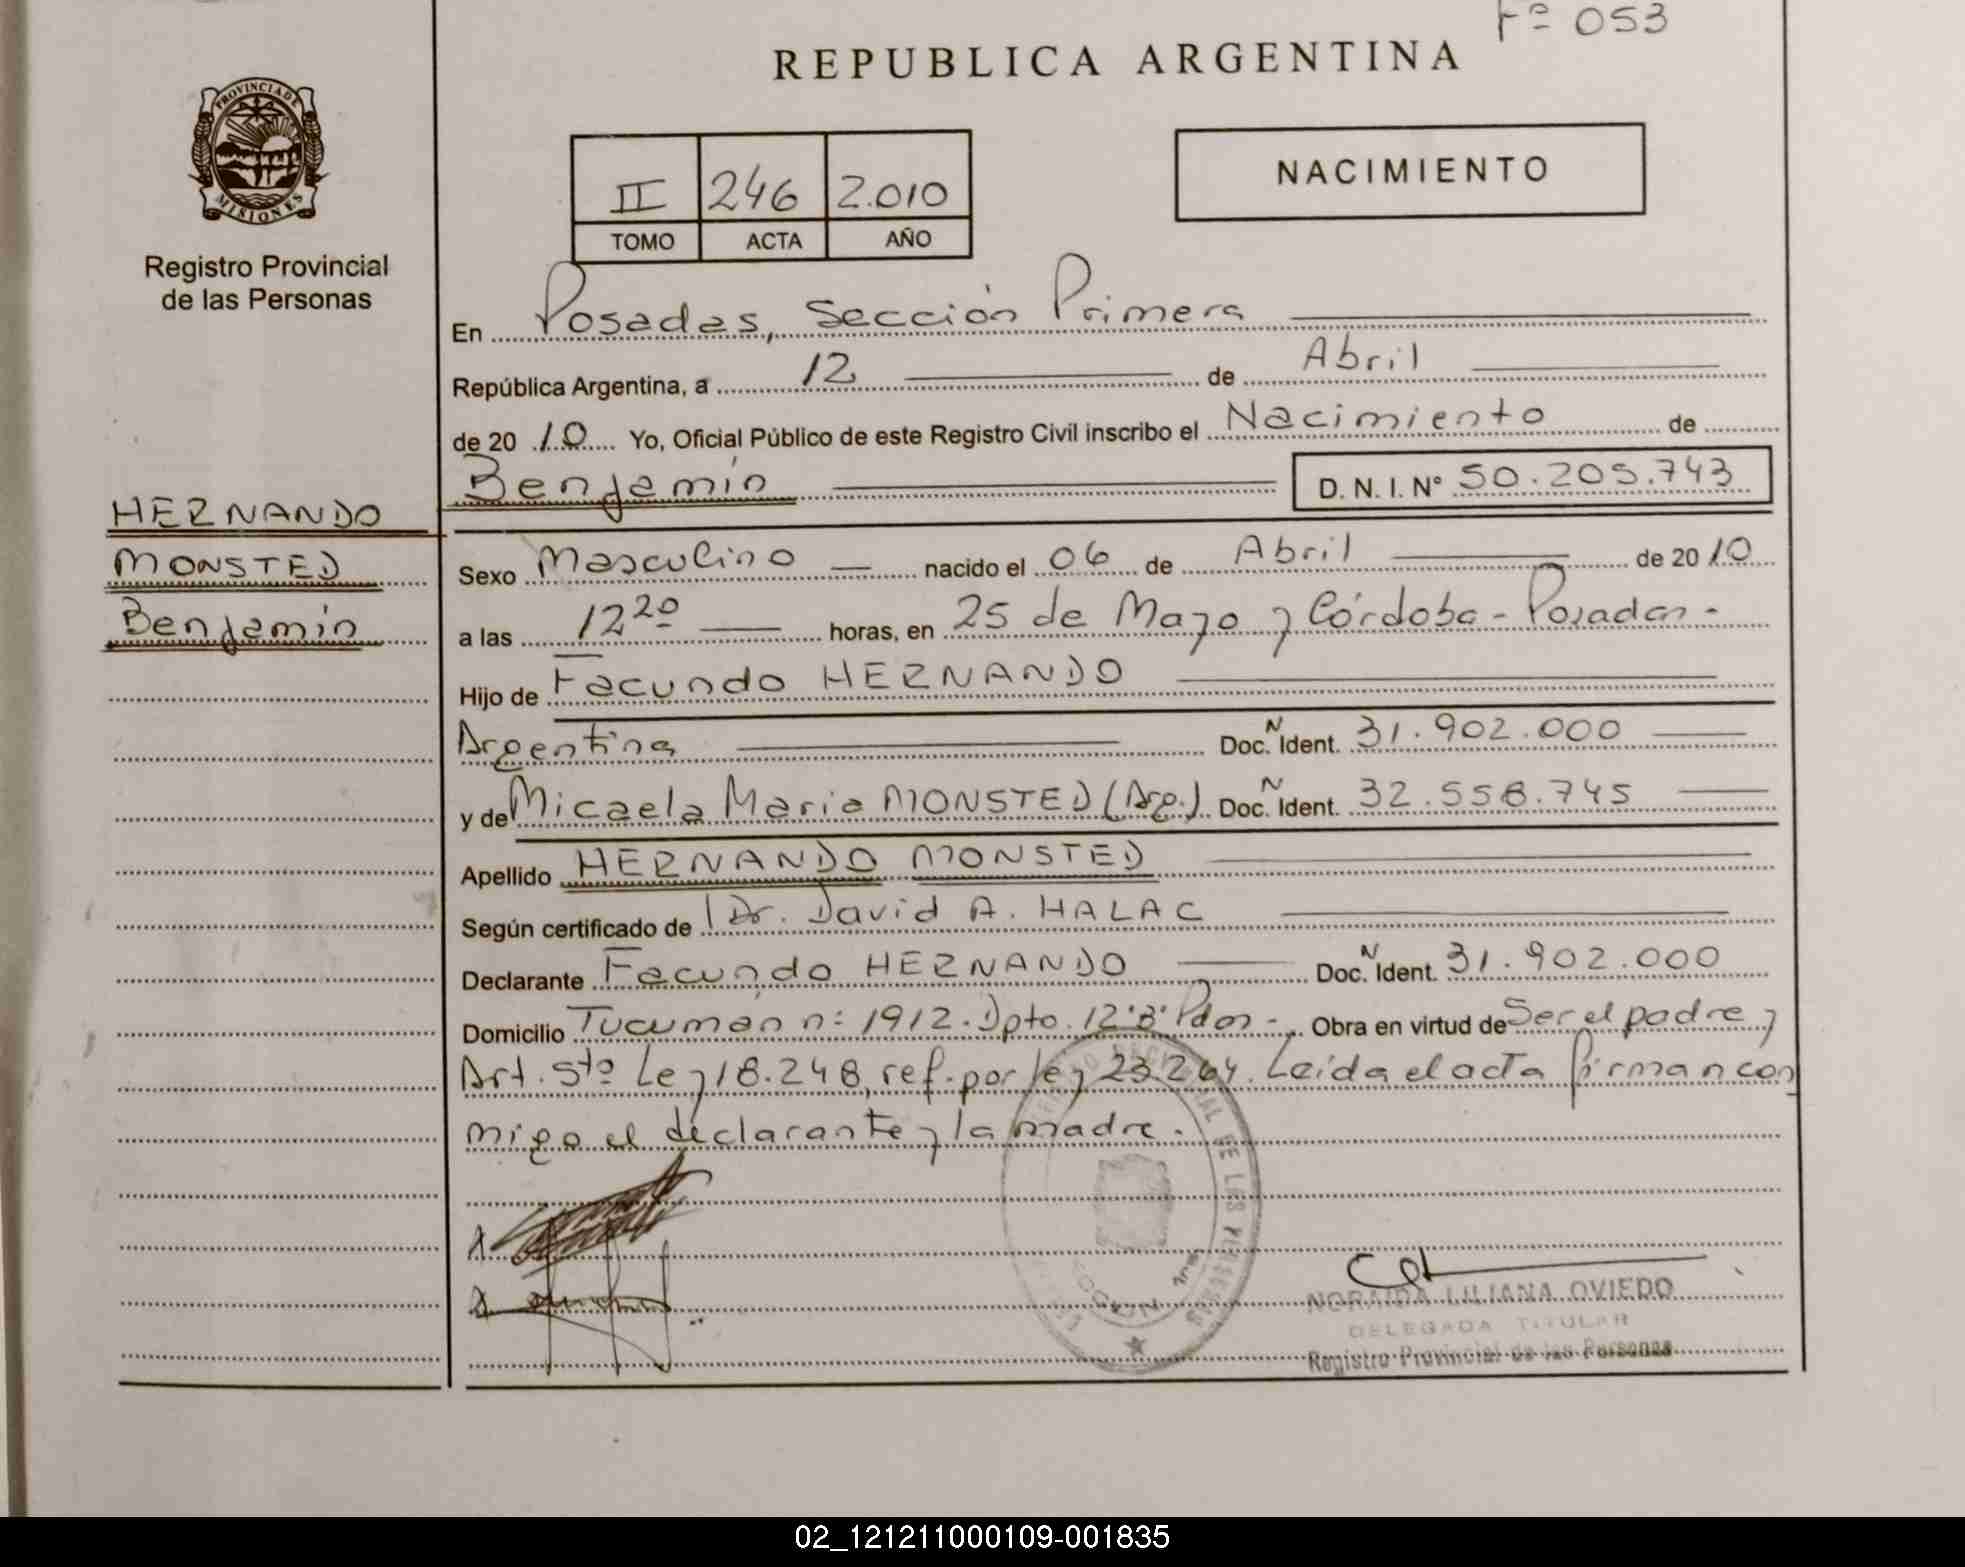 Fº 053
REPUBLICA ARGENTINA
PROVINCIA DE MISIONES
Registro Provincial
de las Personas
II 246 2.010
TOMO ACTA AÑO
NACIMIENTO
En Posadas, Sección Primera
República Argentina, a 12 de Abril
de 2010 Yo, Oficial Público de este Registro Civil inscribo el Nacimiento de
Benjamín D. N. I. Nº 50.205.743
HERNANDO
MONSTED
Benjamín
Sexo Masculino nacido el 06 de Abril de 2010
a las 12 20 horas, en 25 de Mayo y Córdoba - Posadas -
Hijo de Facundo HERNANDO
Argentina Doc. N Ident. 31.902.000
y de Micaela Maria MONSTED (Arg.) Doc. N Ident. 32.558.745
Apellido HERNANDO MONSTED
Según certificado de Dr. David A. HALAC
Declarante Facundo HERNANDO Doc. N Ident. 31.902.000
Domicilio Tucumán nº 1912. Dpto. 12 "B" Pdas - Obra en virtud de Ser el padre y
Art. 5to Ley 18.248, ref. por ley 23.264. Leída el acta firman con
migo el declarante y la madre.
NORAIDA LILIANA OVIEDO
DELEGADA TITULAR
Registro Provincial de las Personas
02_121211000109-001835